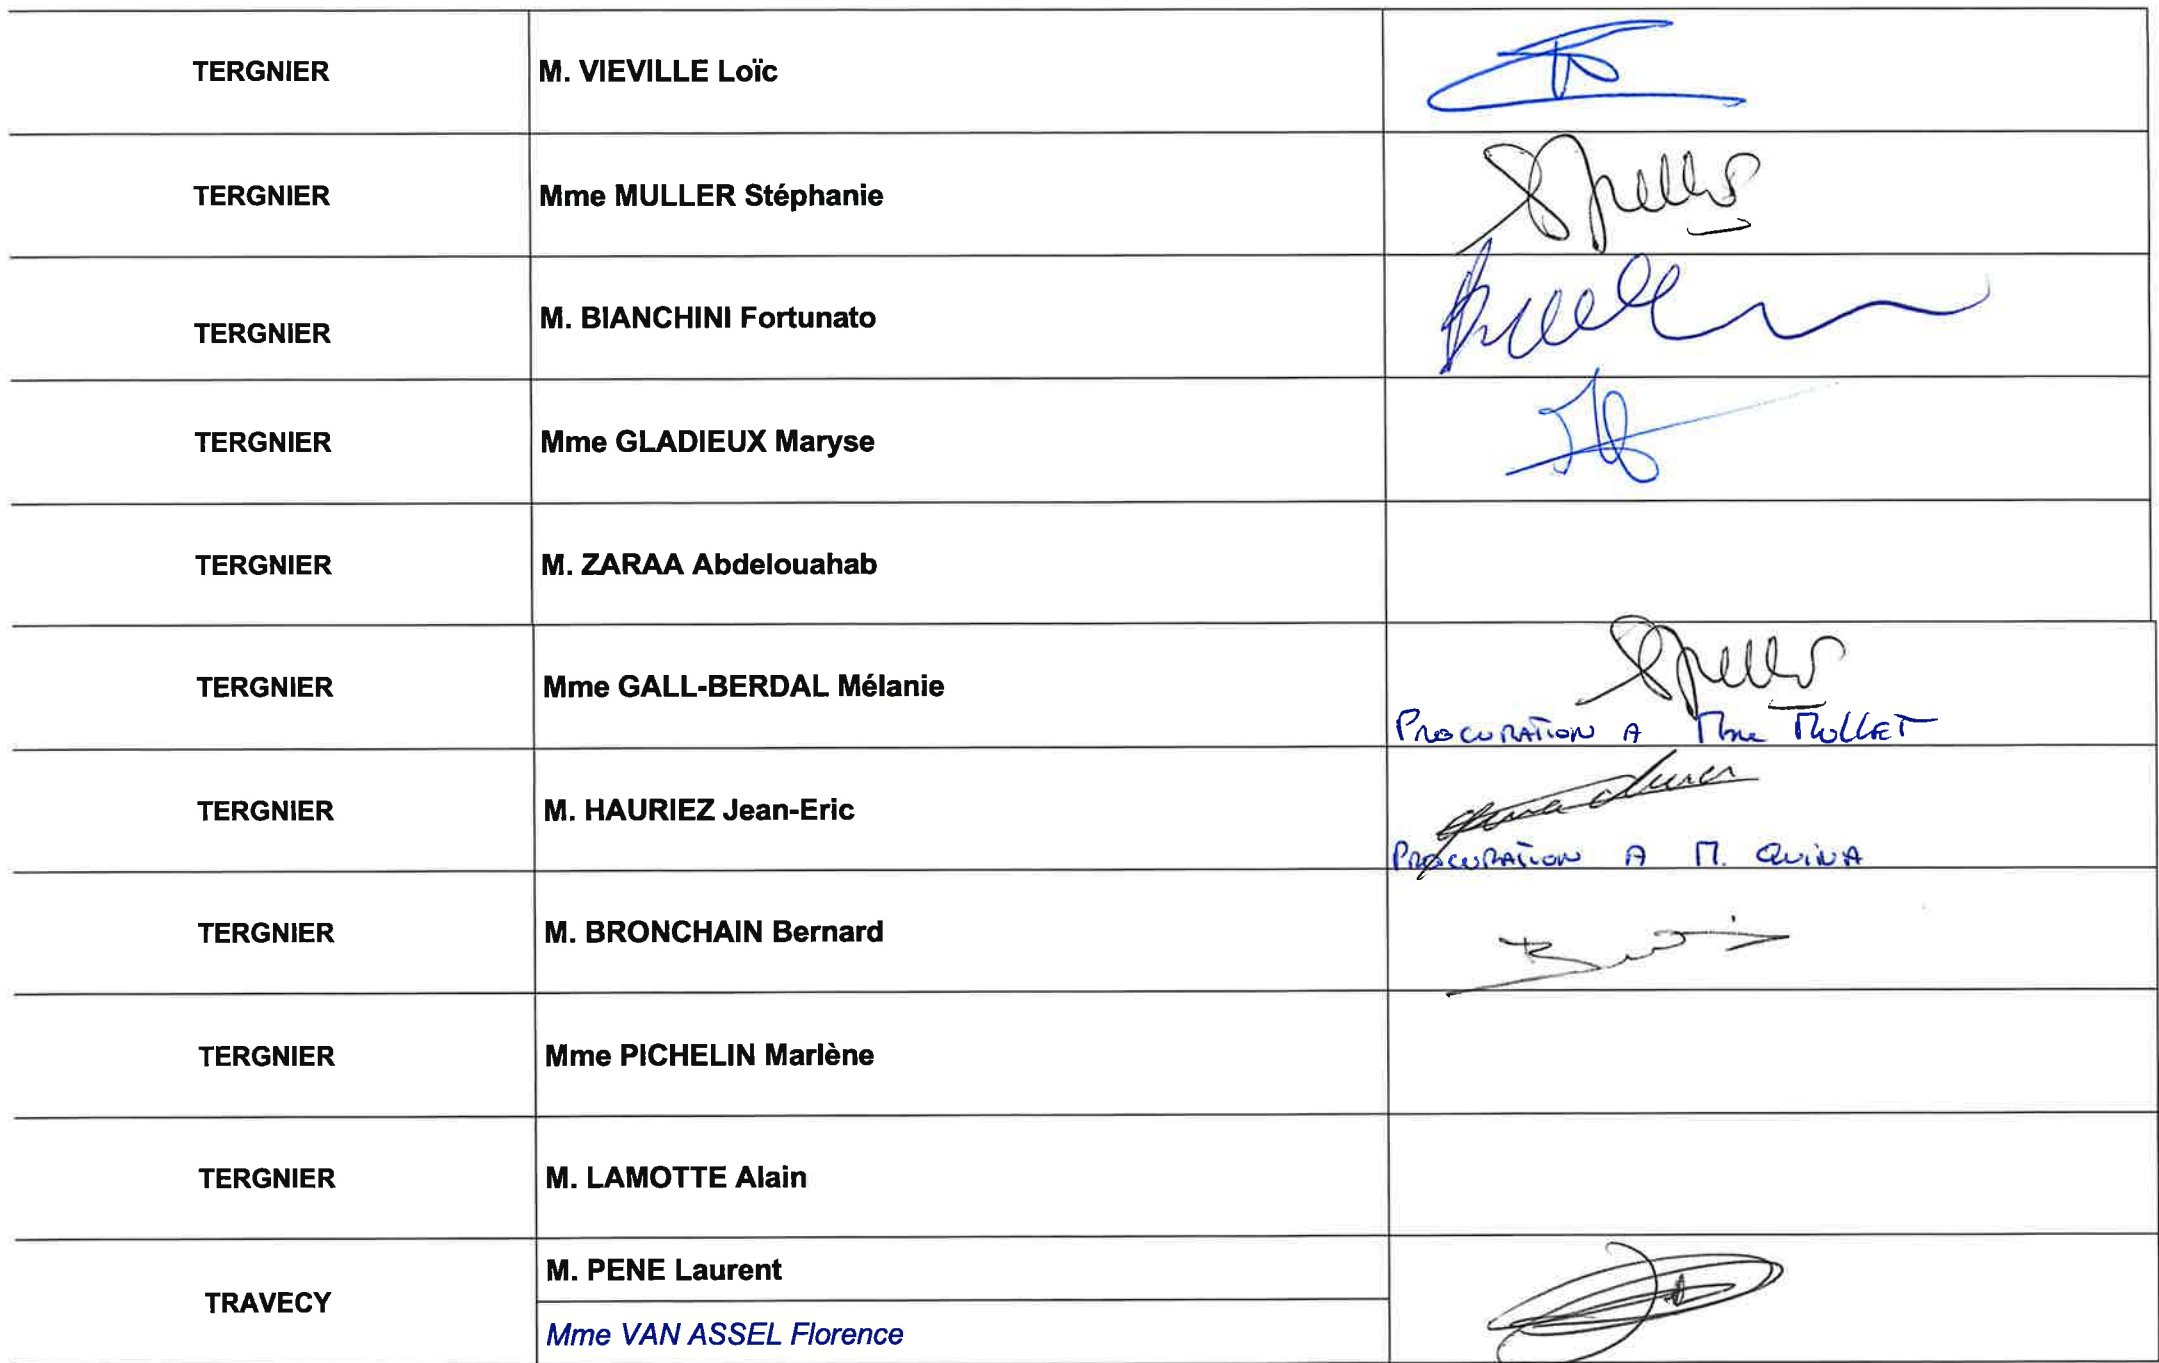 TERGNIER
M. VIEVILLE Loïc
TERGNIER
Mme MULLER Stéphanie
TERGNIER
M. BIANCHINI Fortunato
TERGNIER
Mme GLADIEUX Maryse
TERGNIER
M. ZARAA Abdelouahab
TERGNIER
Mme GALL-BERDAL Mélanie
PROCURATION A Mme MULLET
TERGNIER
M. HAURIEZ Jean-Eric
PROCURATION A M. QUINA
TERGNIER
M. BRONCHAIN Bernard
TERGNIER
Mme PICHELIN Marlène
TERGNIER
M. LAMOTTE Alain
TRAVECY
M. PENE Laurent
Mme VAN ASSEL Florence